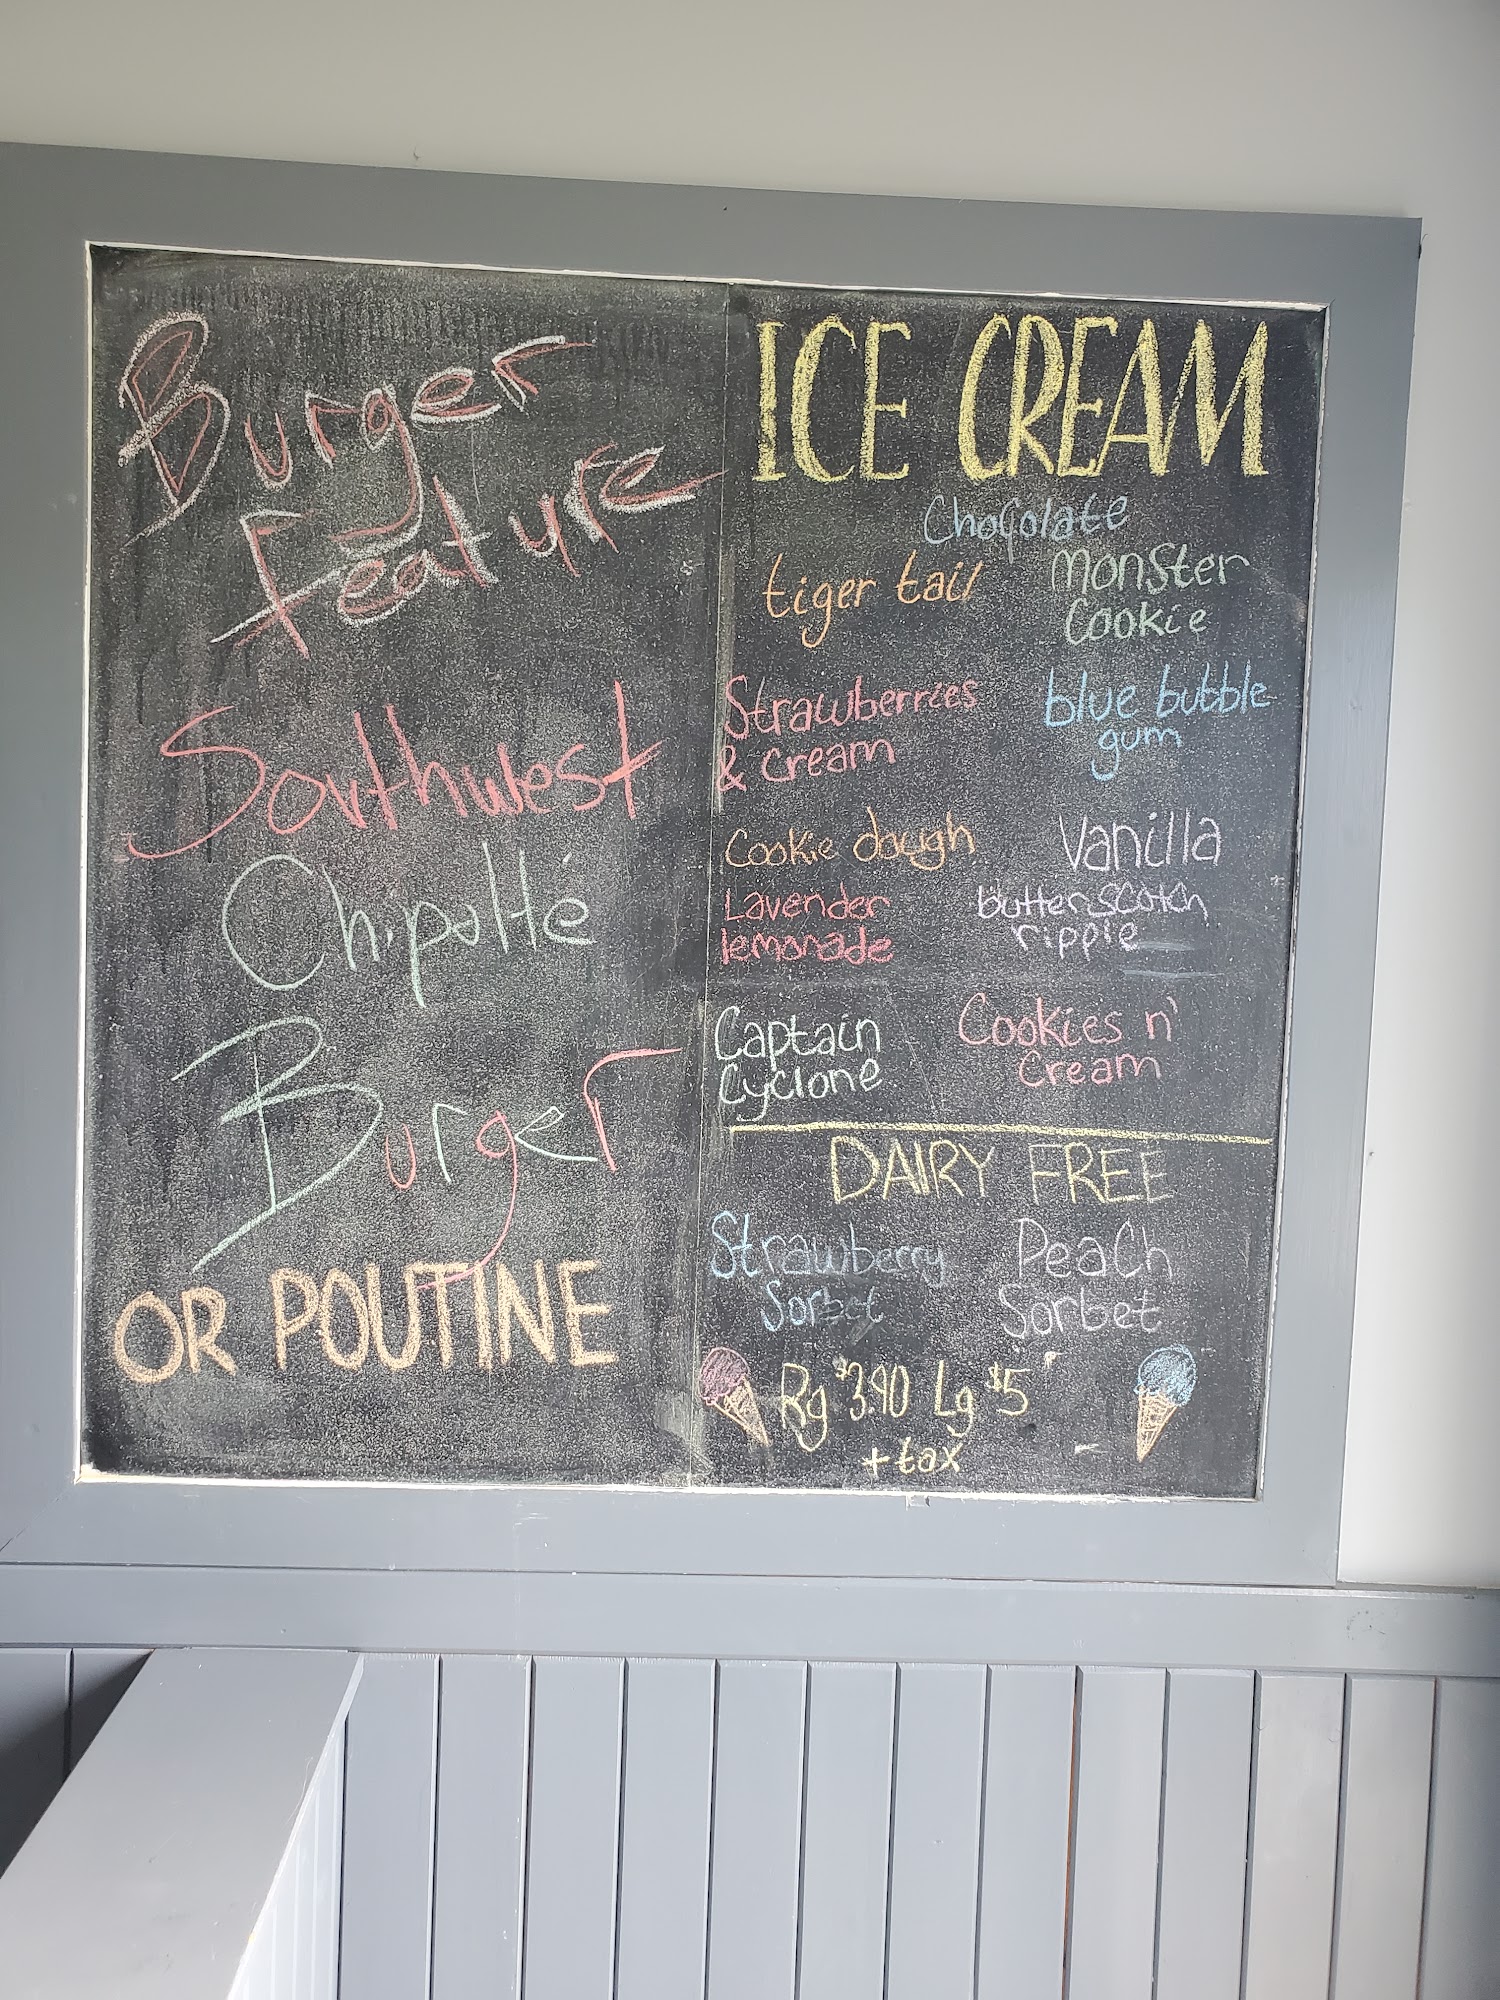 Burger
Feature
Southwest
Chipolté
Burger
OR POUTINE
ICE CREAM
Chocolate
tiger tail
Monster
Cookie
Strawberries
& Cream
blue bubble
gum
Cookie dough
Vanilla
Lavender
lemonade
butterscotch
ripple
Captain
Cyclone
Cookies n'
Cream
DAIRY FREE
Strawberry
Sorbet
Peach
Sorbet
Rg $3.90 Lg $5
+ tax